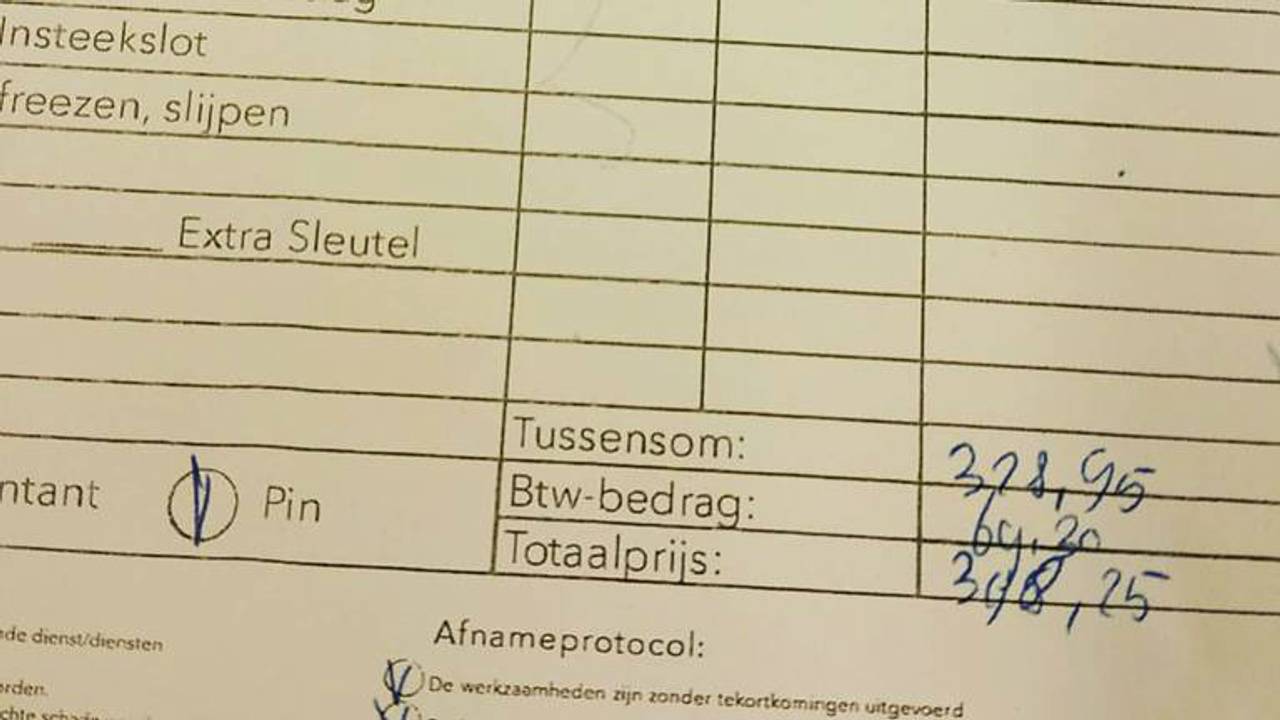 Insteekslot
freezen, slijpen
Extra Sleutel
Tussensom: 328,95
ntant Pin Btw-bedrag: 69,30
Totaalprijs: 398,25
Afnameprotocol:
de dienst/diensten
De werkzaamheden zijn zonder tekortkomingen uitgevoerd
orden.